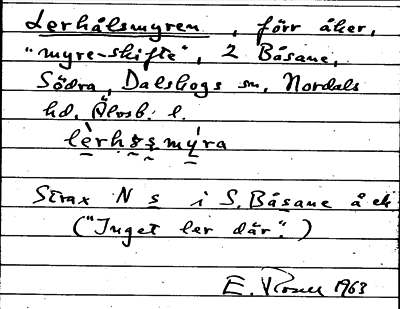 Lerhålsmyren, förr åker,
"myre-skifte", 2 Båsane,
Södra, Dalskogs sn, Nordals
hd. Älvsb. l.
lèrhsmýra
Strax N s i S. Båsane å ek
("Inget ler där".)
E. Rosell 1963